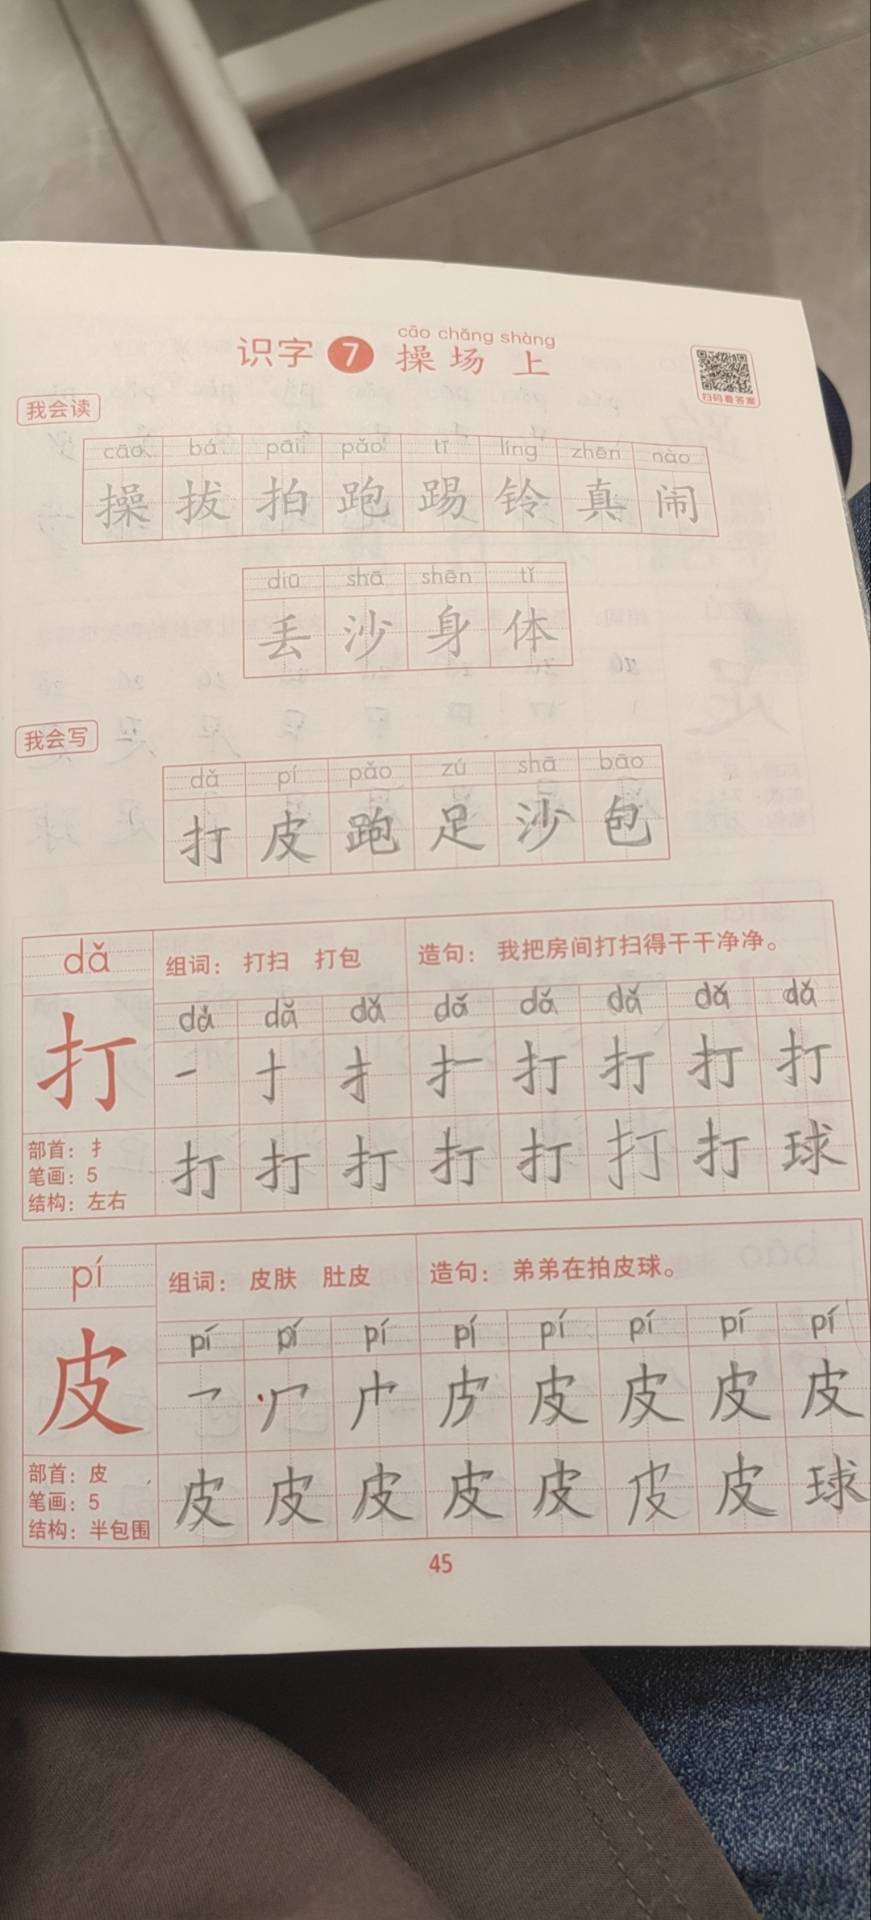 cāo chǎng shàng
识字 7 操场上
扫码看答案
我会读
cāo bá pāi pǎo tī líng zhēn nào
操 拔 拍 跑 踢 铃 真 闹
diū shā shēn tǐ
丢 沙 身 体
我会写
dǎ pí pǎo zú shā bāo
打 皮 跑 足 沙 包
dǎ 组词： 打扫 打包 造句： 我把房间打扫得干干净净。
dǎ dǎ dǎ dǎ dǎ dǎ dǎ dǎ
打 一 扌 扌 打 打 打 打
部首：扌
笔画：5
结构：左右
打 打 打 打 打 打 打 球
pí 组词： 皮肤 肚皮 造句： 弟弟在拍皮球。
pí pí pí pí pí pí pí pí
皮 皮 皮 皮 皮
部首：皮
笔画：5
结构：半包围
皮 皮 皮 皮 皮 皮 皮 球
45